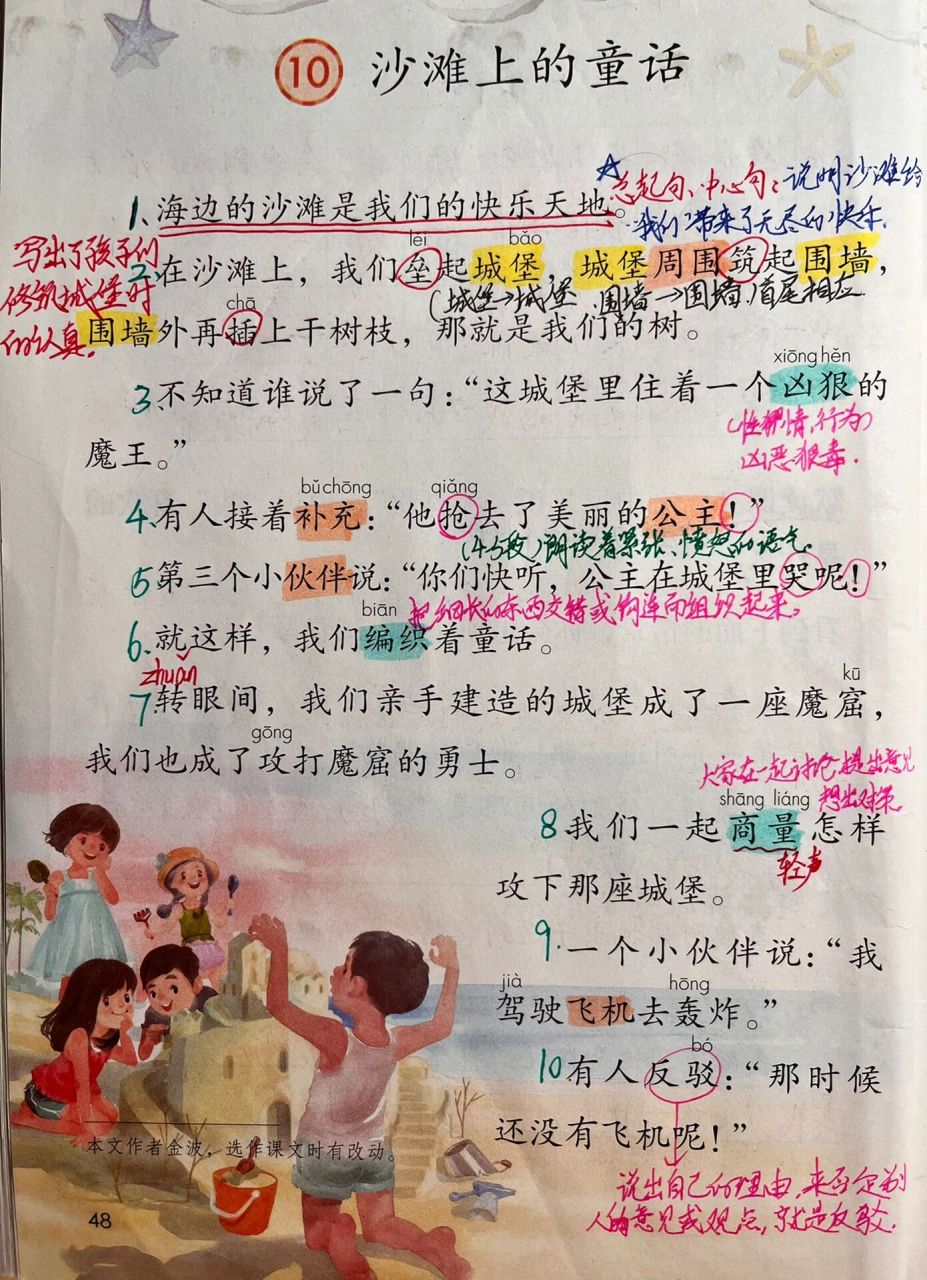 10 沙滩上的童话
总起句、中心句：说明沙滩给
1、海边的沙滩是我们的快乐天地。
"我们"带来了无尽的"快乐.
lěi bǎo
写出了孩子们
2.在沙滩上，我们垒起城堡，城堡周围筑起围墙，
修筑城堡时
(城堡→城堡 围墙→围墙)首尾相应.
chā
的认真.
围墙外再插上干树枝，那就是我们的树。
xiōng hěn
3.不知道谁说了一句：“这城堡里住着一个凶狠的
行为)
凶恶狠毒.
魔王。”
bǔ chōng qiǎng
4.有人接着补充：“他抢去了美丽的公主！”
(4-5段)朗读着紧张、愤怒的语气.
5第三个小伙伴说：“你们快听，公主在城堡里哭呢！”
把细长的东西交错或钩连而组织起来.
biān
6.就这样，我们编织着童话。
zhuǎn
kū
7.转眼间，我们亲手建造的城堡成了一座魔窟，
gōng
我们也成了攻打魔窟的勇士。
大家在一起讨论.提出意见
想出对策
shāng liáng
8我们一起商量怎样
轻声
攻下那座城堡。
9.一个小伙伴说：“我
jià hōng
驾驶飞机去轰炸。”
bó
10有人反驳：“那时候
还没有飞机呢！”
说出自己的理由,来否定别
人的意见或观点,就是反驳.
本文作者金波，选作课文时有改动。
48